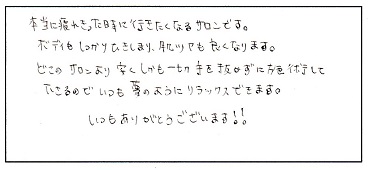 本当に疲れきった時に行きたくなるサロンです。
ボディもしっかりひきしまり、肌ツヤも良くなります。
どこのサロンより安くしかも一切手を抜かずに施術して
下さるのでいつも夢のようにリラックスできます。
いつもありがとうございます!!